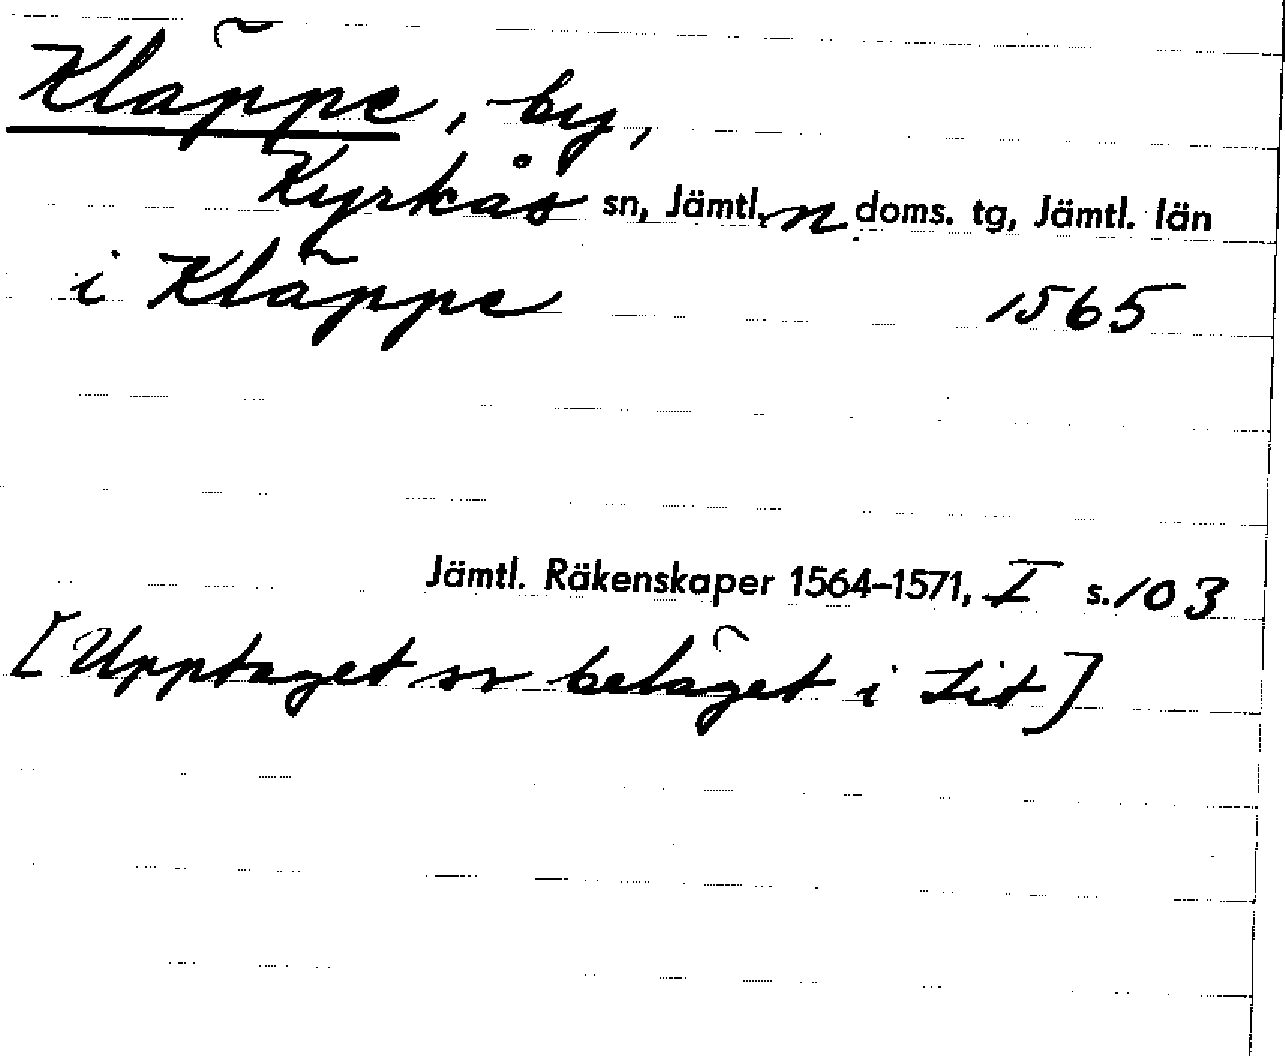 Kläppe, by,
Kyrkås sn, Jämtl. n doms. tg, Jämtl. län
i Kläppe 1565
Jämtl. Räkenskaper 1564–1571, I s. 103
[Upptaget ss beläget i Lit]